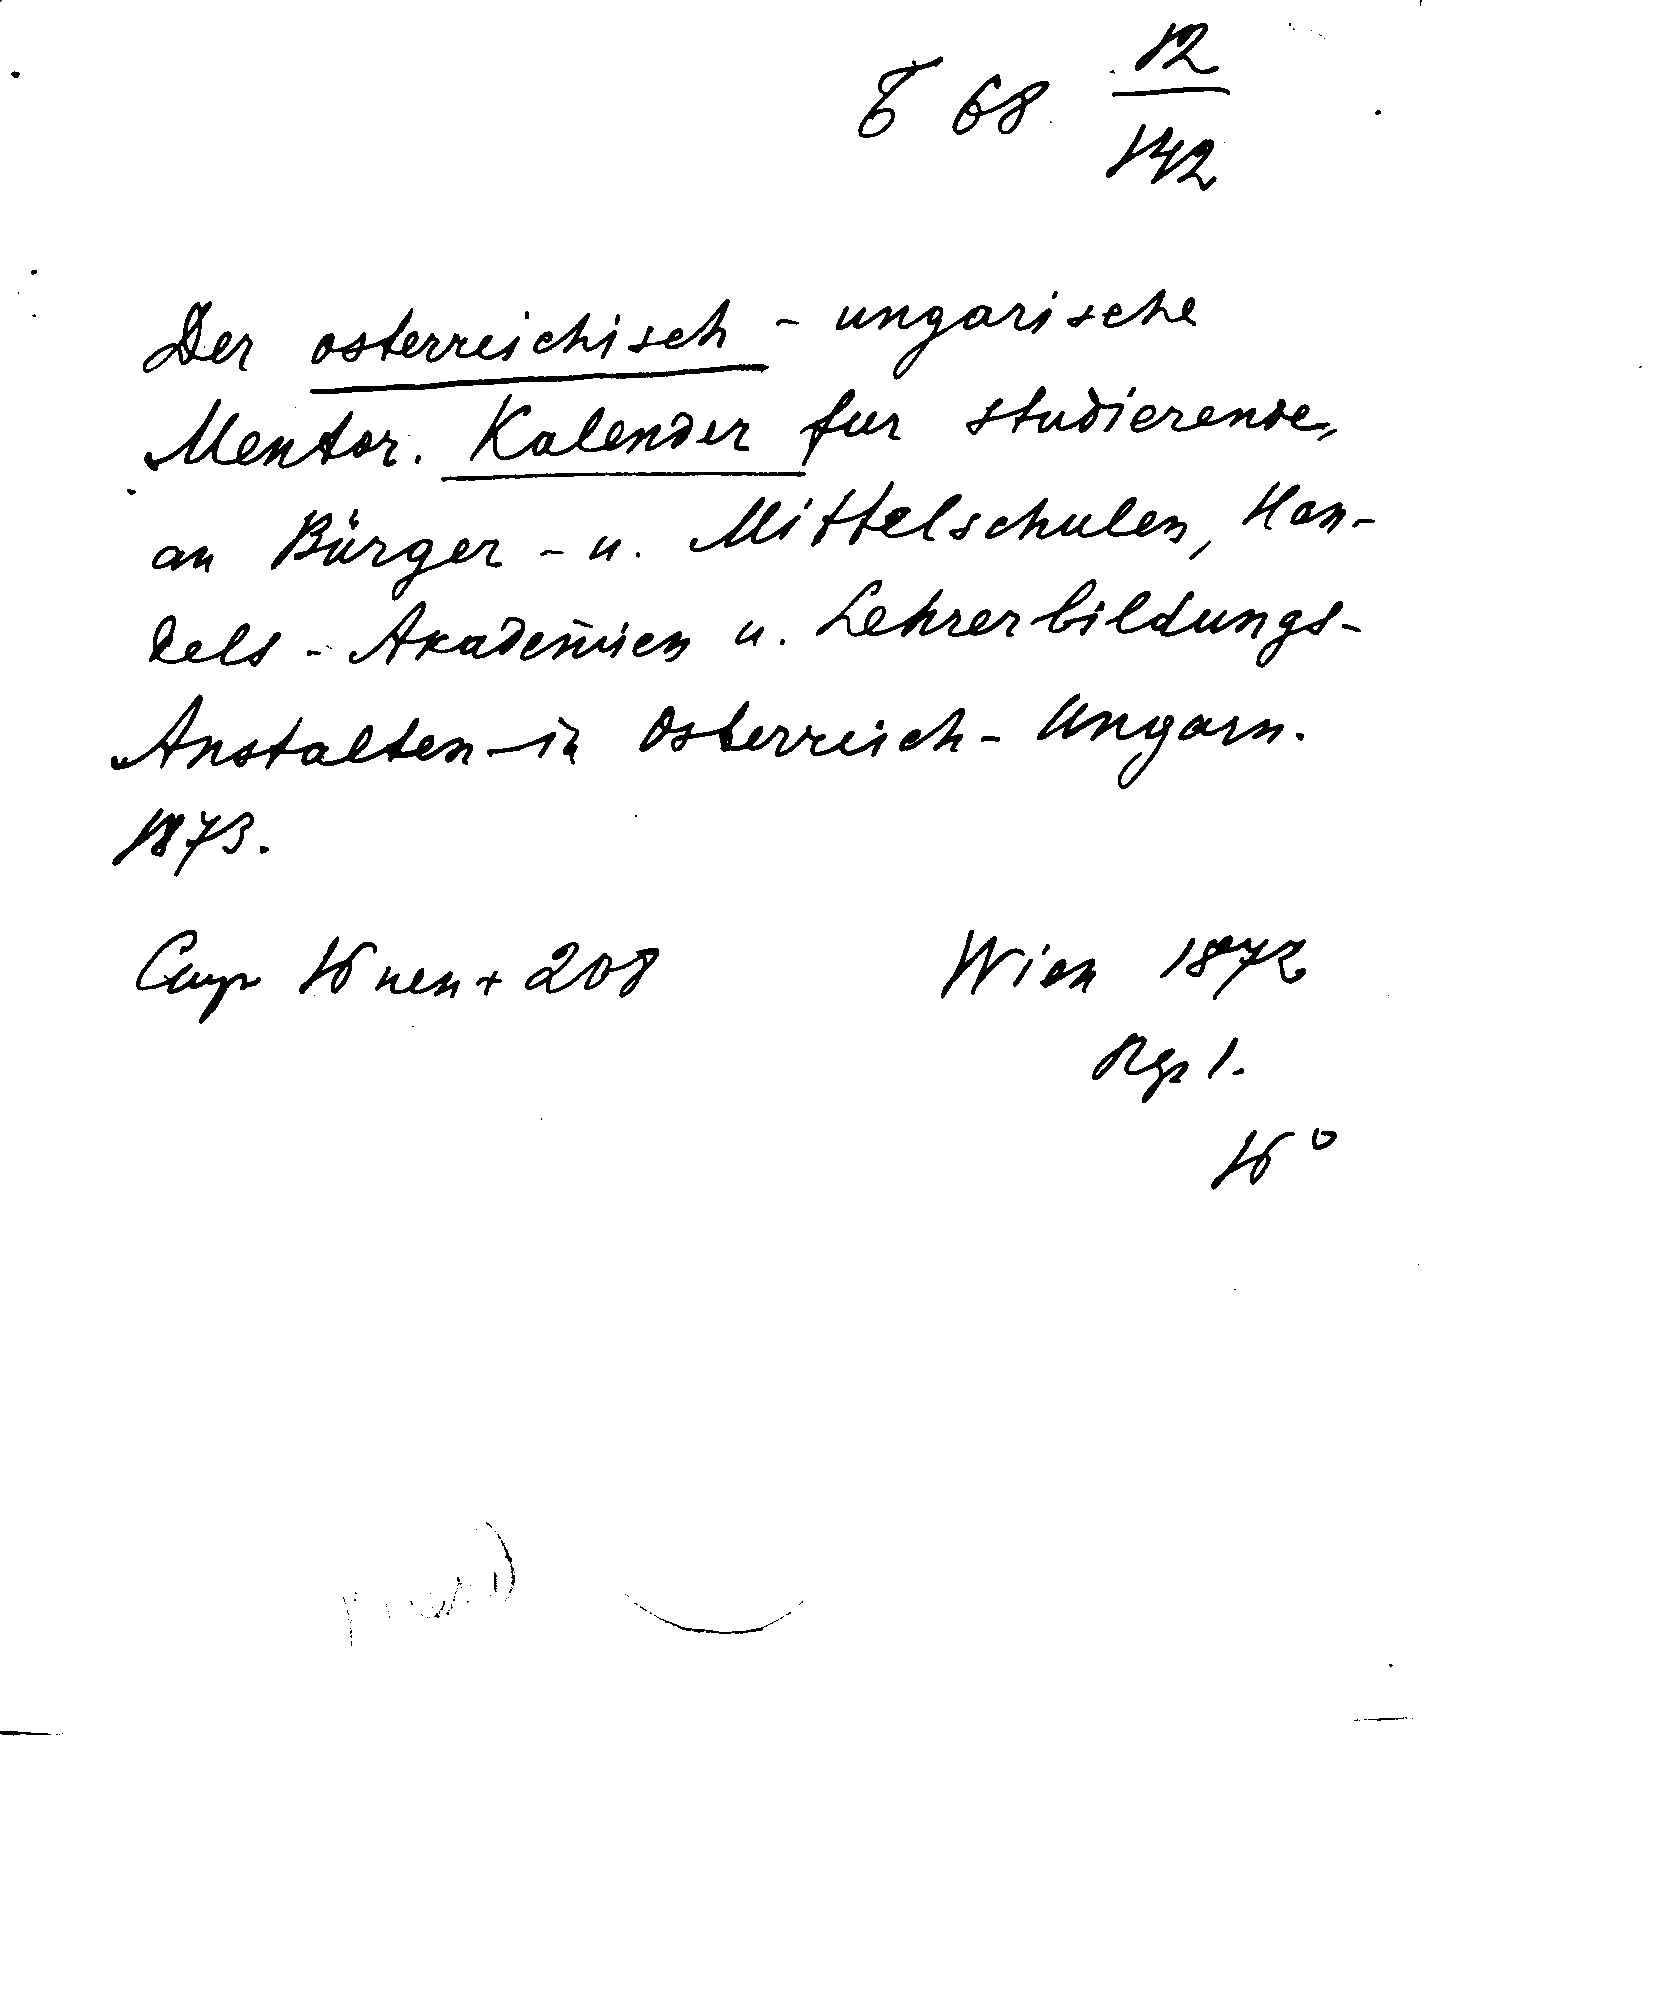 Б 68 12/142
Der osterreichisch - ungarische
Mentor. Kalender fur studierende,
an Bürger - u. Mittelschulen, Han-
dels - Akademien u. Lehrerbildungs-
Anstalten in Osterreich - Ungarn.
1873.
Стр 16 нен + 208 Wien 1872
16°